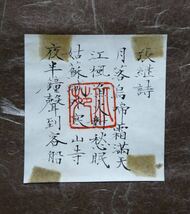 張継詩
月落烏啼霜滿天
江楓漁火對愁眠
姑蘇城外寒山寺
夜半鐘聲到客船